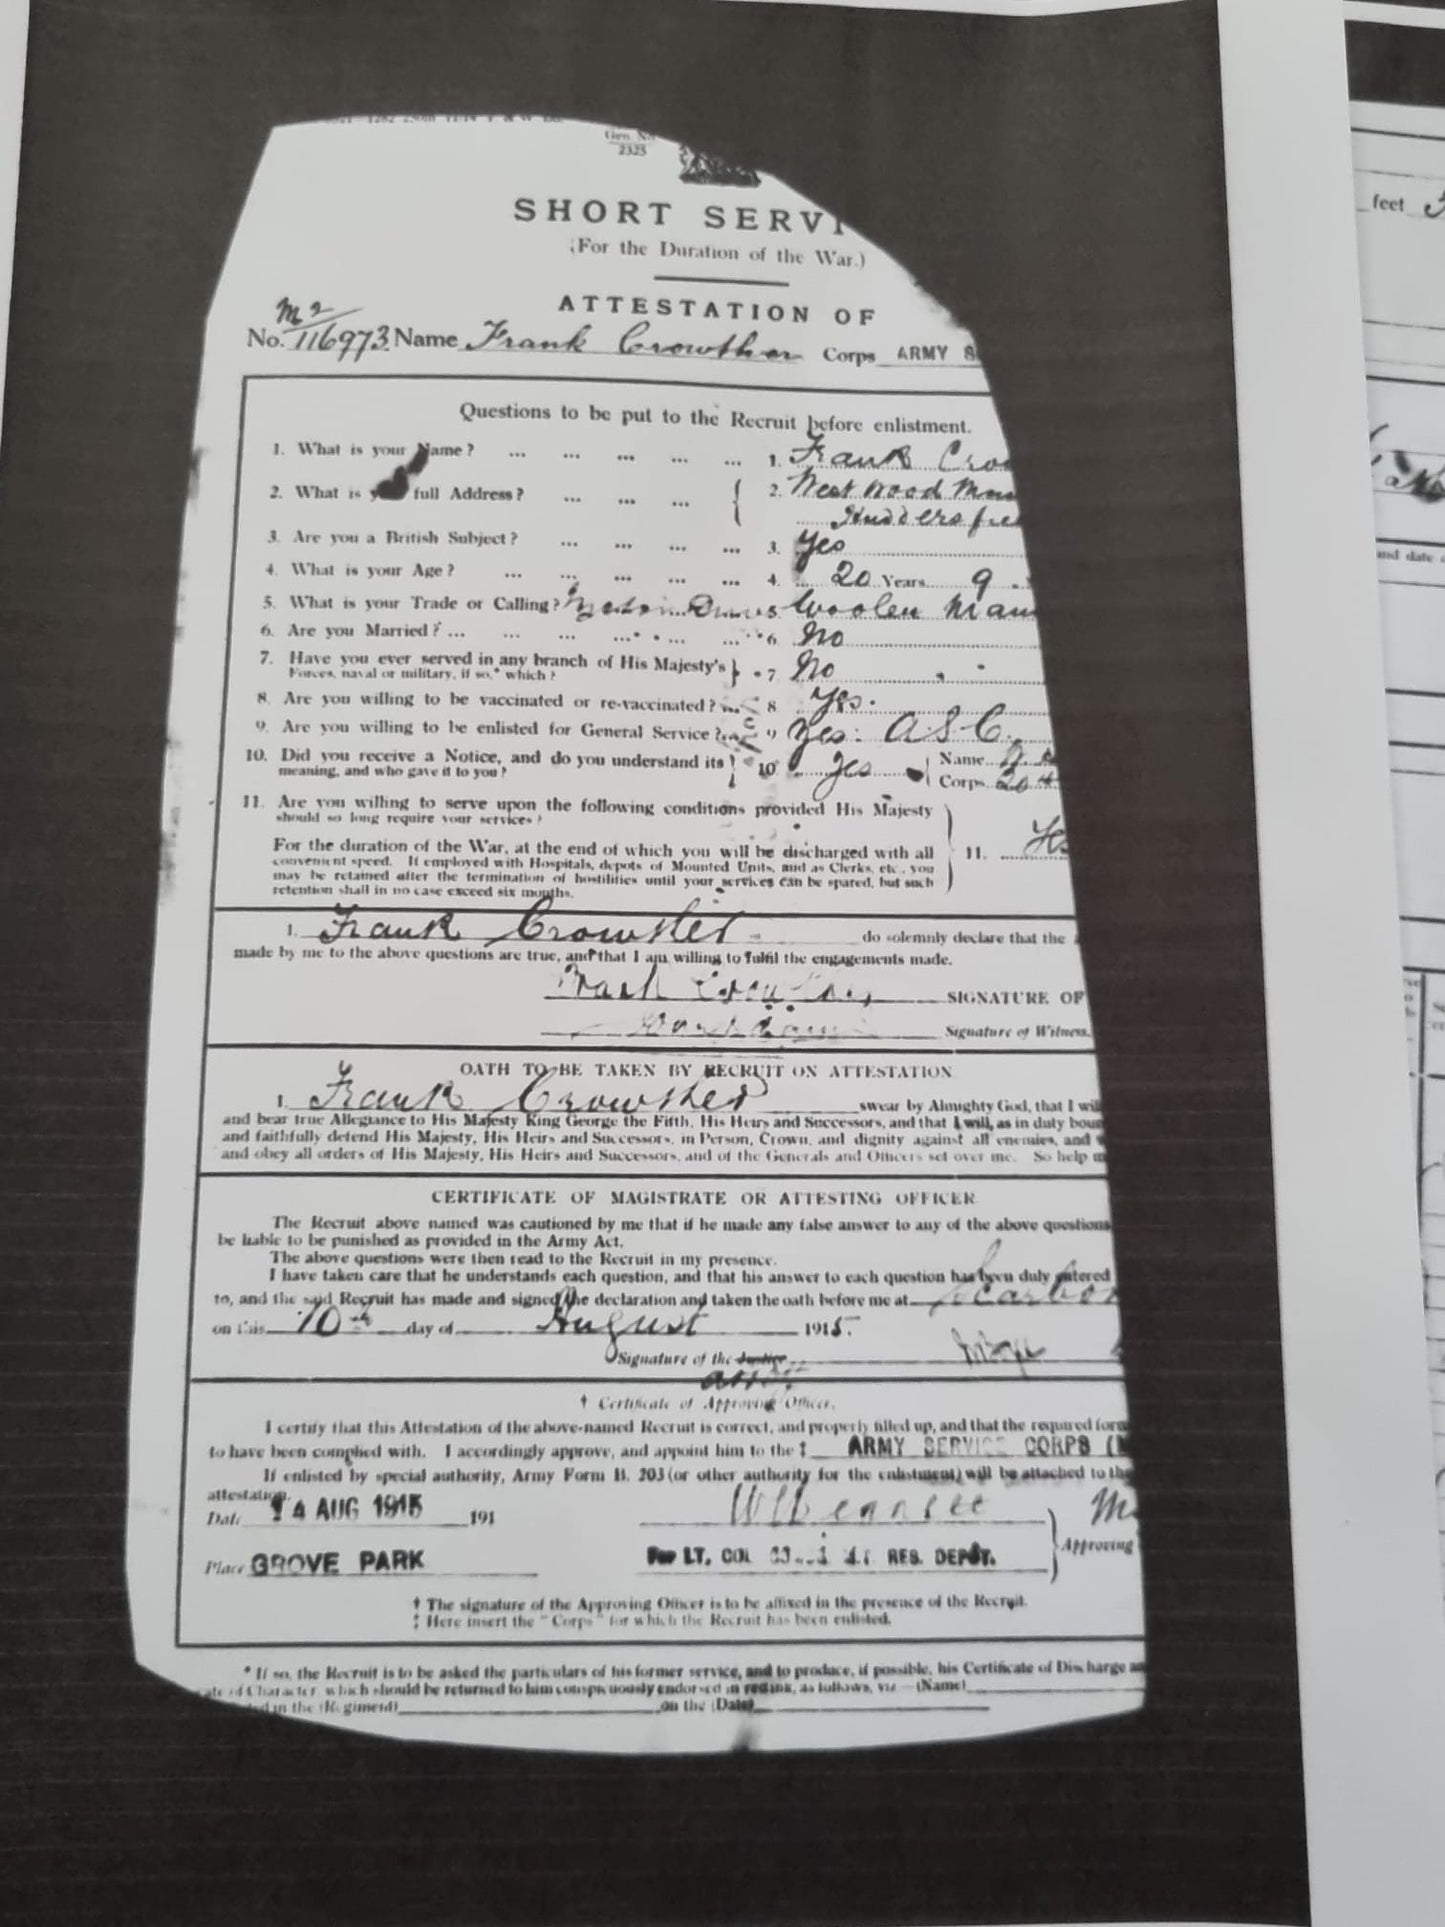 Gen. No.
2325
SHORT SERVI
(For the Duration of the War.)
ATTESTATION OF
No. M2/116973. Name Frank Crowther Corps ARMY S
Questions to be put to the Recruit before enlistment.
1. What is your Name? ... ... ... ... ... 1. Frank Cro
2. What is full Address? ... ... ... { 2. West Wood
Huddersfie
3. Are you a British Subject? ... ... ... ... 3. Yes
4. What is your Age? ... ... ... ... ... 4. 20 Years 9
5. What is your Trade or Calling? 5. Woolen Man
6. Are you Married? ... ... ... ... ... 6. No
7. Have you ever served in any branch of His Majesty's } 7. No
Forces, naval or military, if so,* which?
8. Are you willing to be vaccinated or re-vaccinated? ... 8. Yes.
9. Are you willing to be enlisted for General Service? 9. Yes: ASC.
10. Did you receive a Notice, and do you understand its } 10. Yes { Name
meaning, and who gave it to you? Corps
11. Are you willing to serve upon the following conditions provided His Majesty
should so long require your services?
For the duration of the War, at the end of which you will be discharged with all } 11.
convenient speed. If employed with Hospitals, depots of Mounted Units, and as Clerks, etc., you
may be retained after the termination of hostilities until your services can be spared, but such
retention shall in no case exceed six months.
I, Frank Crowther do solemnly declare that the
made by me to the above questions are true, and that I am willing to fulfil the engagements made.
SIGNATURE OF
Signature of Witness.
OATH TO BE TAKEN BY RECRUIT ON ATTESTATION
I, Frank Crowther swear by Almighty God, that I will
and bear true Allegiance to His Majesty King George the Fifth, His Heirs and Successors, and that I will, as in duty boun
and faithfully defend His Majesty, His Heirs and Successors, in Person, Crown, and dignity against all enemies, and
and obey all orders of His Majesty, His Heirs and Successors, and of the Generals and Officers set over me. So help m
CERTIFICATE OF MAGISTRATE OR ATTESTING OFFICER
The Recruit above named was cautioned by me that if he made any false answer to any of the above questions
be liable to be punished as provided in the Army Act.
The above questions were then read to the Recruit in my presence.
I have taken care that he understands each question, and that his answer to each question has been duly entered
to, and the said Recruit has made and signed the declaration and taken the oath before me at Scarbor
on this 10th day of August 1915.
Signature of the Justice
† Certificate of Approving Officer.
I certify that this Attestation of the above-named Recruit is correct, and properly filled up, and that the required form
to have been complied with. I accordingly approve, and appoint him to the ‡ ARMY SERVICE CORPS (M
If enlisted by special authority, Army Form B. 203 (or other authority for the enlistment) will be attached to the
attestation.
Date 14 AUG 1915 191
Approving
Place GROVE PARK For LT. COL RES. DEPÔT.
† The signature of the Approving Officer is to be affixed in the presence of the Recruit.
‡ Here insert the "Corps" for which the Recruit has been enlisted.
* If so, the Recruit is to be asked the particulars of his former service, and to produce, if possible, his Certificate of Discharge an
ate of Character, which should be returned to him conspicuously endorsed in red ink, as follows, viz.—(Name)
ed in the (Regiment) on the (Date)
feet
and date